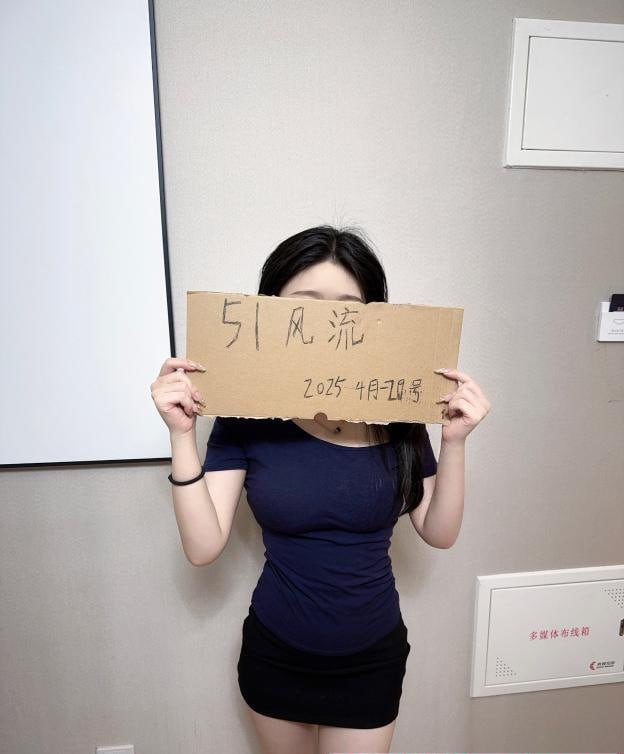 51风流
2025 4月-28号
多媒体布线箱